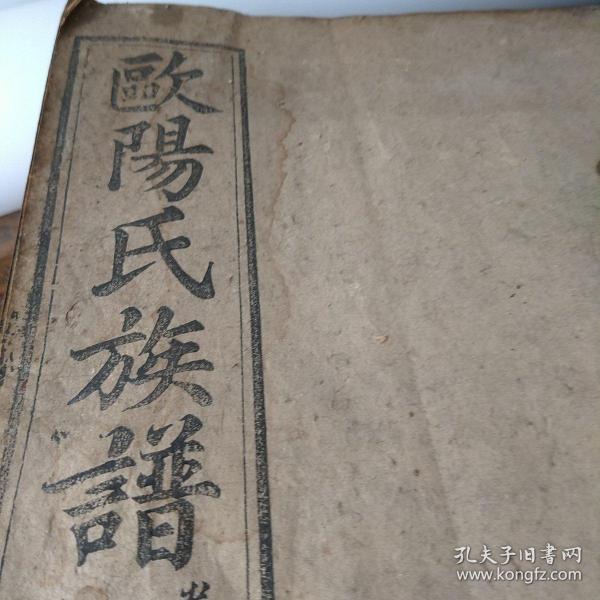 歐陽氏族譜
孔夫子旧书网
www.kongfz.com